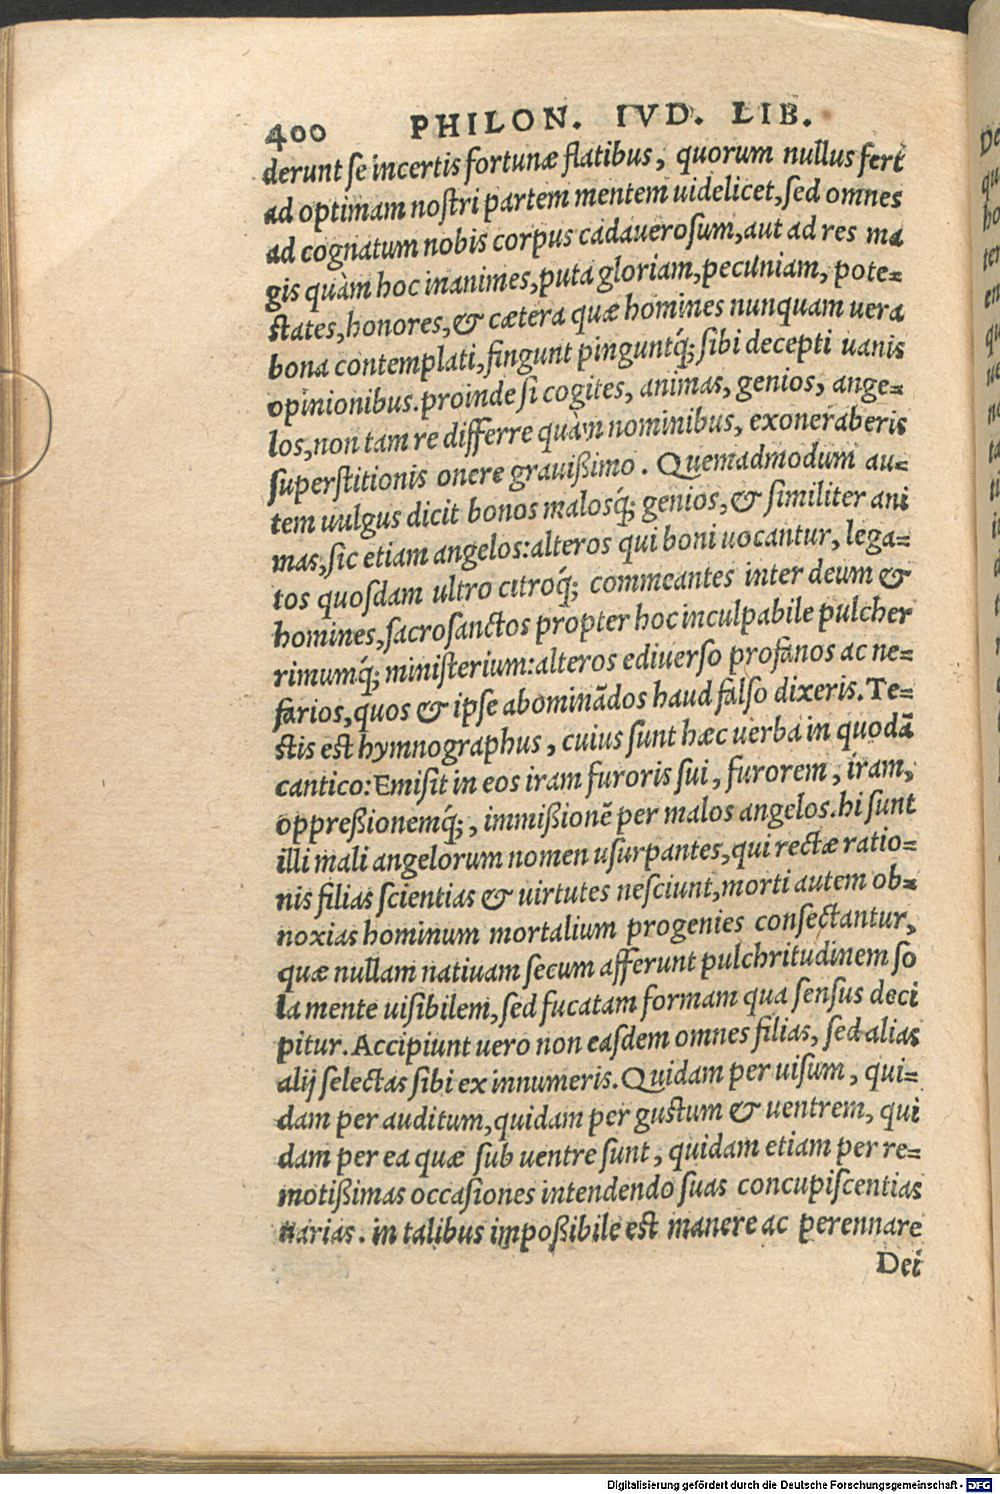 400 PHILON. IVD. LIB.
derunt se incertis fortunæ flatibus, quorum nullus fert
ad optimam nostri partem mentem uidelicet, sed omnes
ad cognatum nobis corpus cadauerosum, aut ad res ma
gis quàm hoc inanimes, puta gloriam, pecuniam, pote=
states, honores, & cætera quæ homines nunquam uera
bona contemplati, fingunt pinguntq́; sibi decepti uanis
opinionibus. proinde si cogites, animas, genios, ange=
los, non tam re differre quàm nominibus, exoneraberis
superstitionis onere grauißimo. Quemadmodum au=
tem uulgus dicit bonos malosq́; genios, & similiter ani
mas, sic etiam angelos: alteros qui boni uocantur, lega=
tos quosdam ultro citroq́; commeantes inter deum &
homines, sacrosanctos propter hoc inculpabile pulcher
rimumq́; ministerium: alteros ediuerso profanos ac ne=
farios, quos & ipse abominādos haud falso dixeris. Te=
stis est hymnographus, cuius sunt hæc uerba in quodā
cantico: Emisit in eos iram furoris sui, furorem, iram,
oppreßionemq́;, immißionē per malos angelos. hi sunt
illi mali angelorum nomen usurpantes, qui rectæ ratio=
nis filias scientias & uirtutes nesciunt, morti autem ob=
noxias hominum mortalium progenies consectantur,
quæ nullam natiuam secum afferunt pulchritudinem so
la mente uisibilem, sed fucatam formam qua sensus deci
pitur. Accipiunt uero non easdem omnes filias, sed alias
alij selectas sibi ex innumeris. Quidam per uisum, qui=
dam per auditum, quidam per gustum & uentrem, qui
dam per ea quæ sub uentre sunt, quidam etiam per re=
motißimas occasiones intendendo suas concupiscentias
uarias. in talibus impoßibile est manere ac perennare
Dei
Digitalisierung gefördert durch die Deutsche Forschungsgemeinschaft - DFG